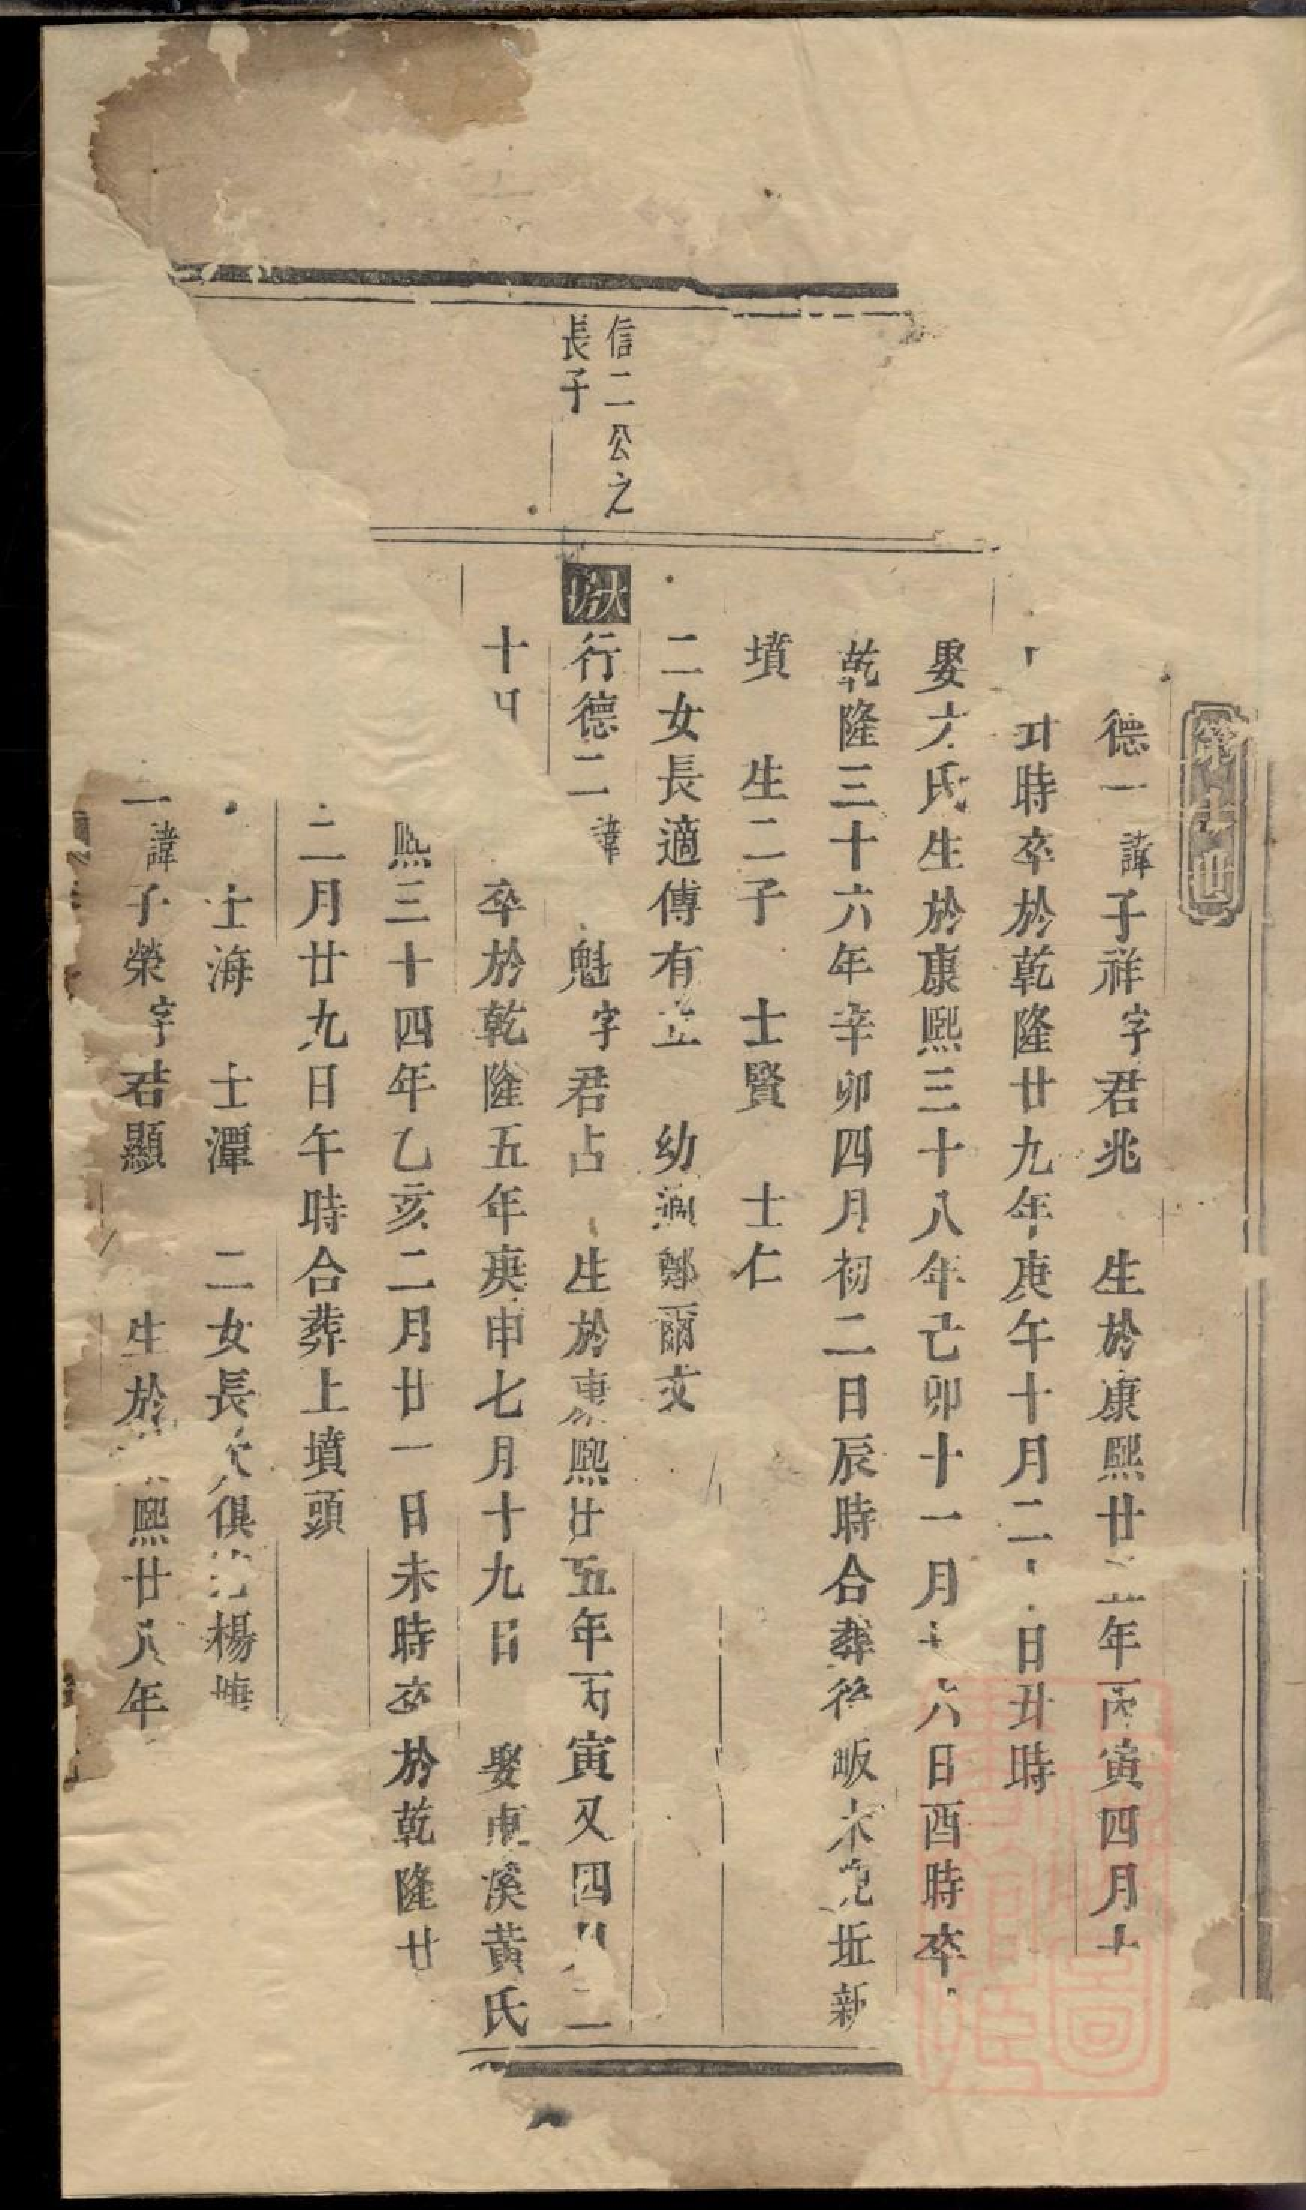 德一諱子祥字君兆 生於康熙廿五年丙寅四月十
丑時卒於乾隆廿九年庚午十月二 日丑時
娶方氏生於康熙三十八年己卯十一月十六日酉時卒
乾隆三十六年辛卯四月初二日辰時合葬後畈木 坵新
墳 生二子 士賢 士仁
二女長適傅有 幼適鄭爾文
信二公之
長子
行德二諱 魁字君占 生於康熙廿五年丙寅又四月 二
十 卒於乾隆五年庚申七月十九日 娶東溪黃氏
熙三十四年乙亥二月廿一日未時卒於乾隆廿
二月廿九日午時合葬上墳頭
士海 士潭 二女長次俱 楊
諱子榮字君顯 生於 熙廿八年